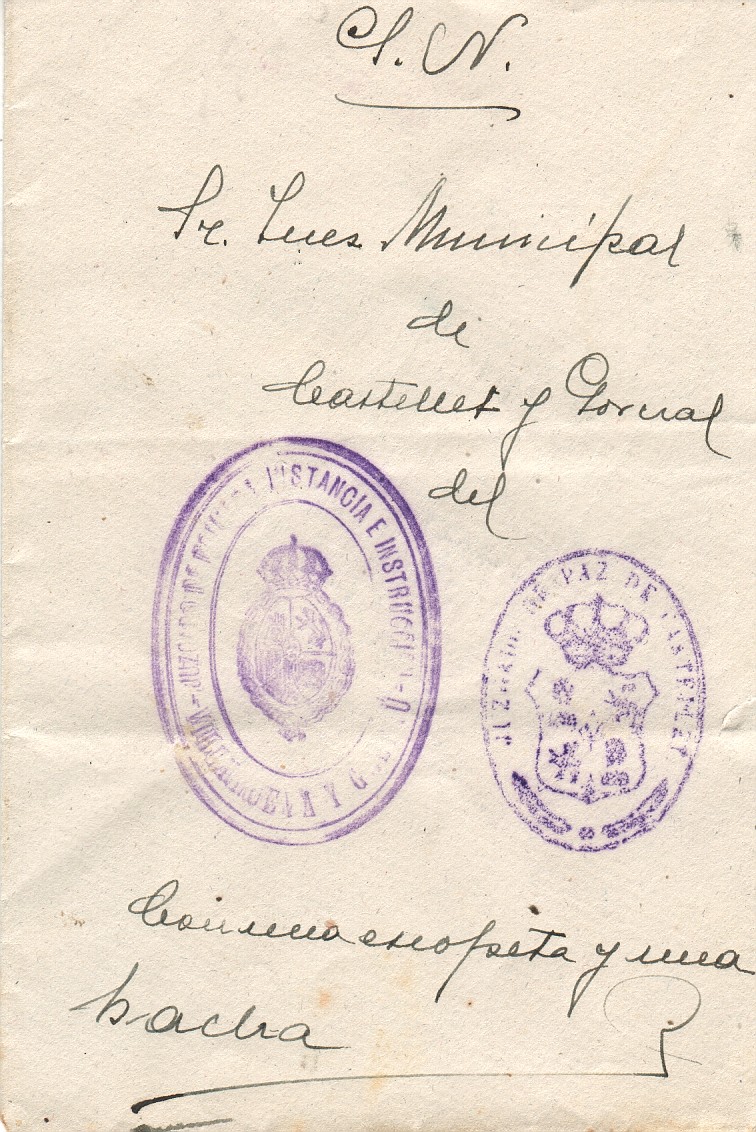 S. N.
Sr. Jues Municipal
de
Castellet y Gornal
del
JUZGADO DE PRIMERA INSTANCIA E INSTRUCCION
VILLANUEVA Y G
JUZGADO DE PAZ DE CASTELLET
Con una escopeta y una
hacha